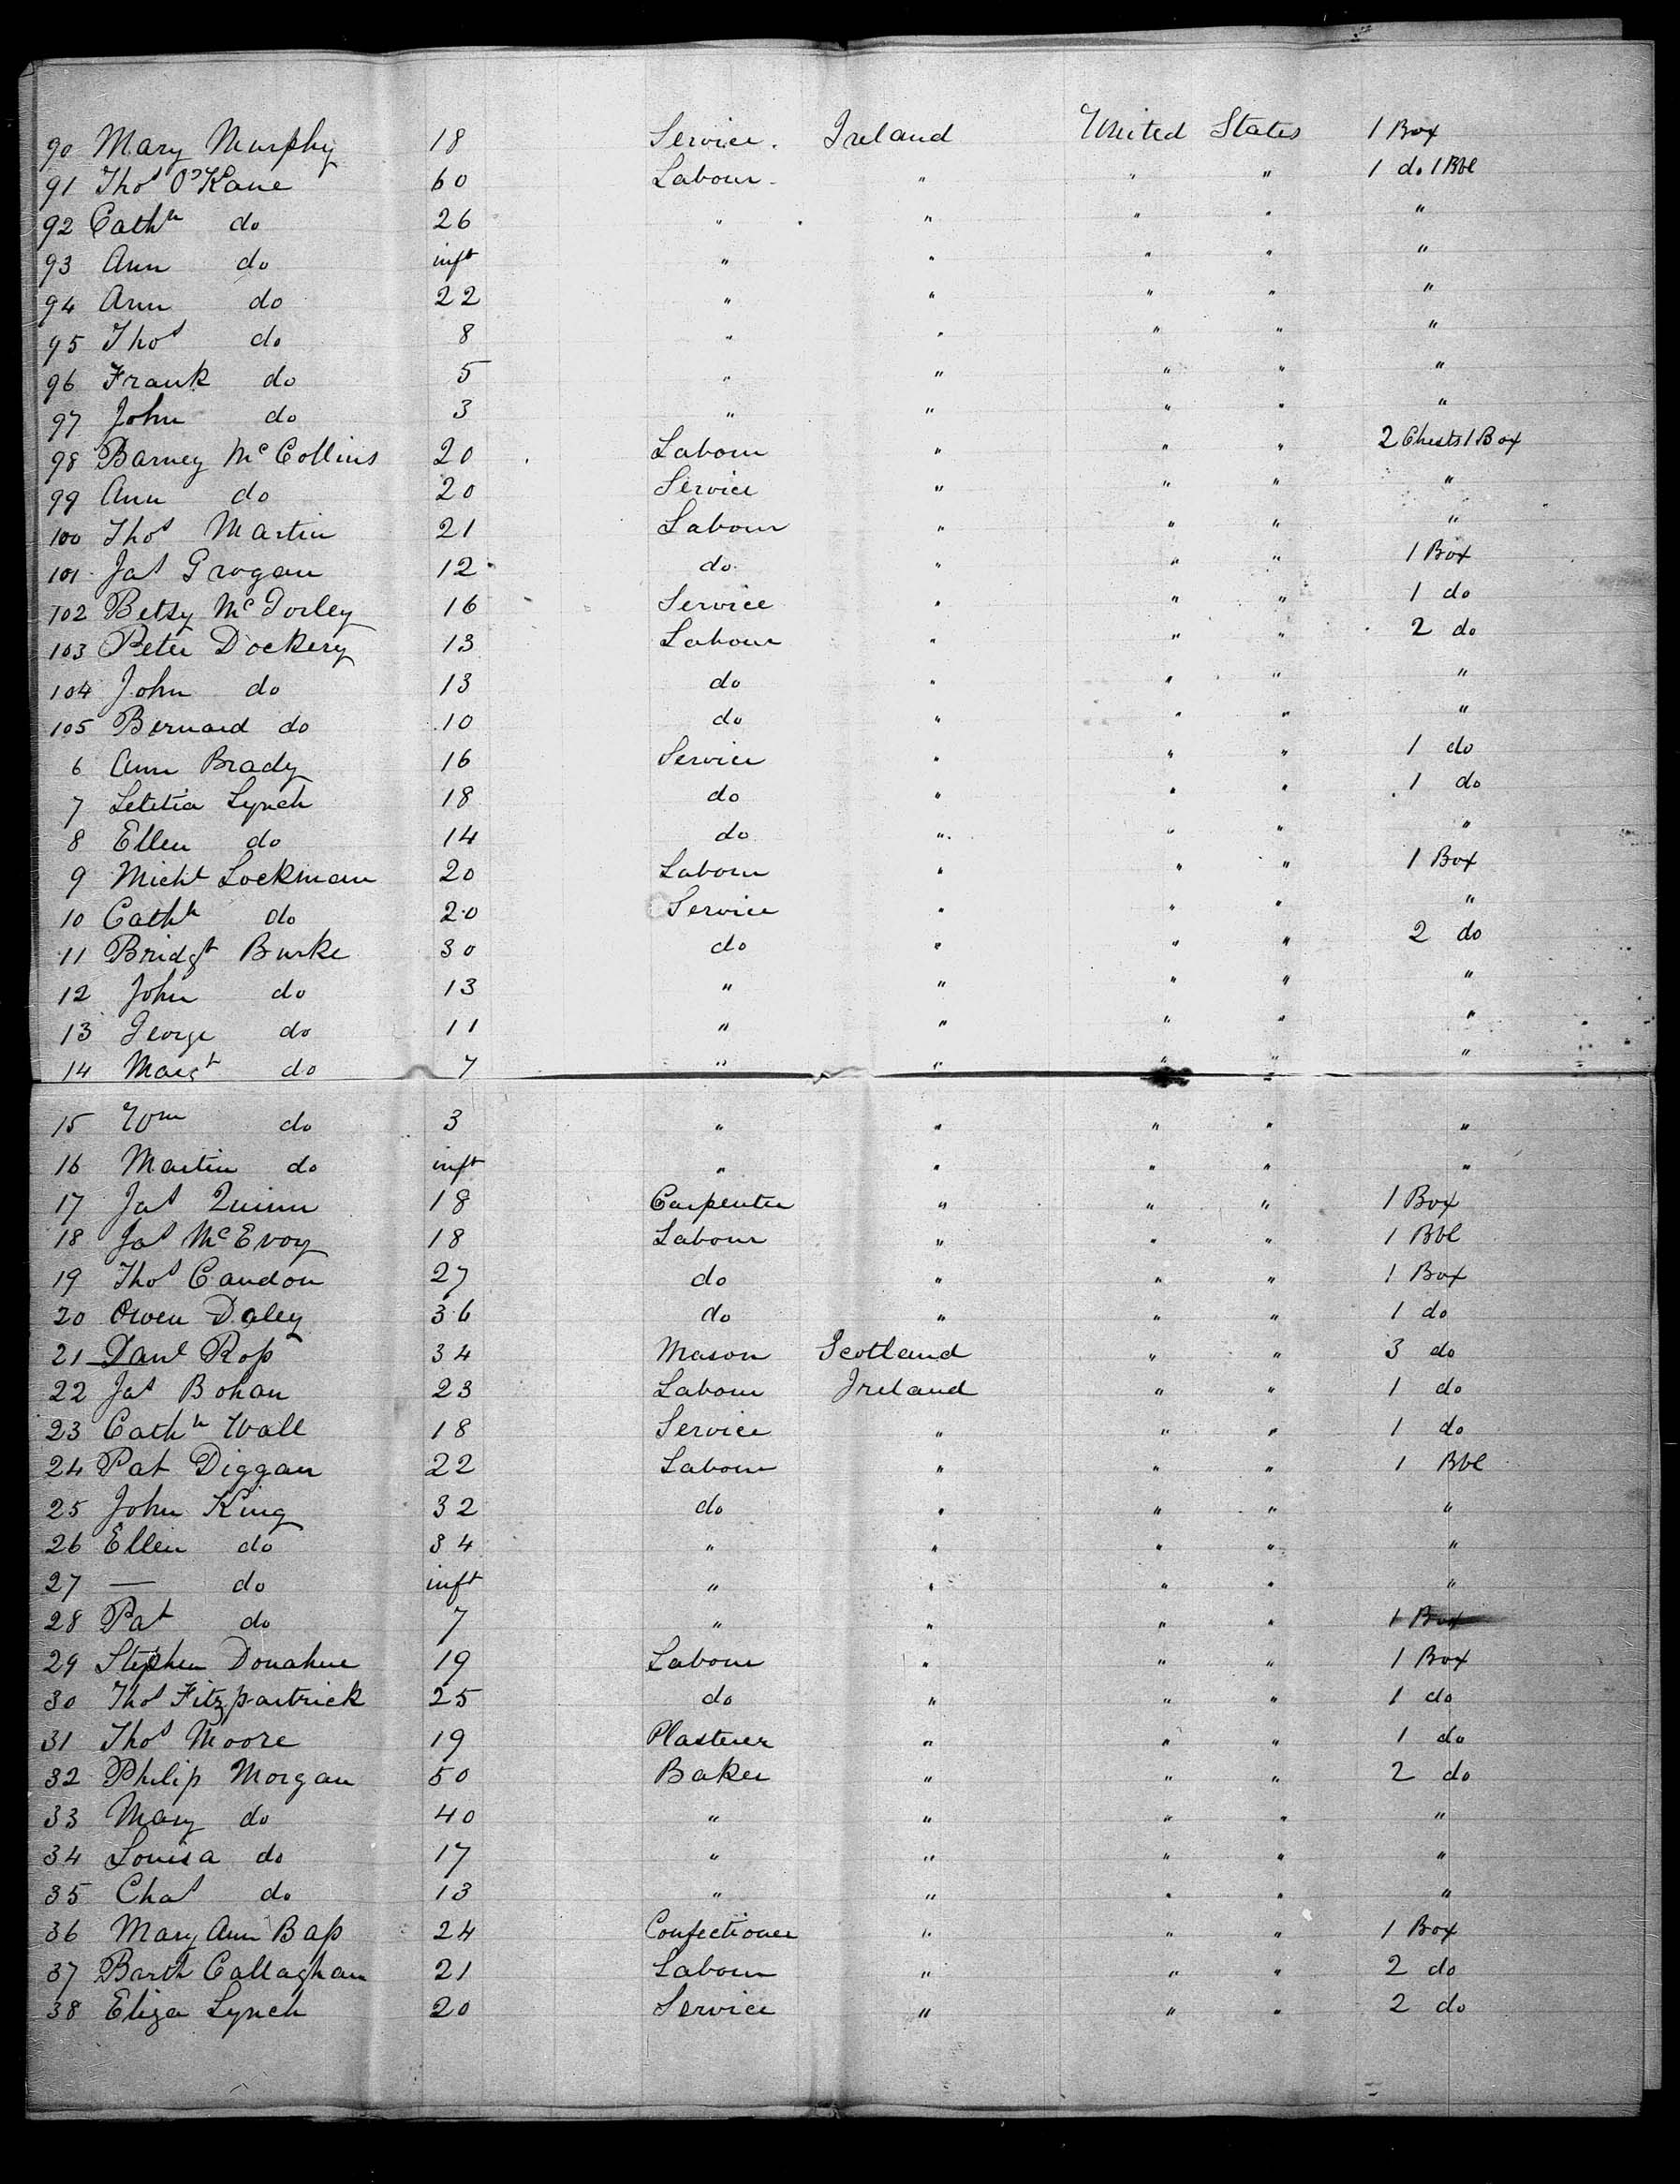 90 Mary Murphy 18 Service. Ireland United States 1 Box
91 Thos O'Kane 60 Labour. " " " 1 do 1 Bbl
92 Cathn do 26 " " " " "
93 Ann do inft " " " " "
94 Ann do 22 " " " " "
95 Thos do 8 " " " " "
96 Frank do 5 " " " " "
97 John do 3 " " " " "
98 Barney McCollins 20 Labour " " " 2 Chests 1 Box
99 Ann do 20 Service " " " "
100 Thos Martin 21 Labour " " " "
101 Jas Grogan 12 do " " " 1 Box
102 Betsy McTorley 16 Service " " " 1 do
103 Peter Dockery 13 Labour " " " 2 do
104 John do 13 do " " " "
105 Bernard do 10 do " " " "
6 Ann Brady 16 Service " " " 1 do
7 Letitia Lynch 18 do " " " 1 do
8 Ellen do 14 do " " " "
9 Michl Lockman 20 Labour " " " 1 Box
10 Cathn do 20 Service " " " "
11 Bridgt Burke 30 do " " " 2 do
12 John do 13 " " " " "
13 George do 11 " " " " "
14 Margt do 7 " " " " "
15 Wm do 3 " " " " "
16 Martin do inft " " " " "
17 Jas Quinn 18 Carpenter " " " 1 Box
18 Jas McEvoy 18 Labour " " " 1 Bbl
19 Thos Candon 27 do " " " 1 Box
20 Owen Daley 36 do " " " 1 do
21 Danl Ross 34 Mason Scotland " " 3 do
22 Jas Bohan 23 Labour Ireland " " 1 do
23 Cathn Wall 18 Service " " " 1 do
24 Pat Diggan 22 Labour " " " 1 Bbl
25 John King 32 do " " " "
26 Ellen do 34 " " " " "
27 — do inft " " " " "
28 Pat do 7 " " " " 1 Box
29 Stephen Donahue 19 Labour " " " 1 Box
30 Thos Fitzpartrick 25 do " " " 1 do
31 Thos Moore 19 Plasterer " " " 1 do
32 Philip Morgan 50 Baker " " " 2 do
33 Mary do 40 " " " " "
34 Louisa do 17 " " " " "
35 Chas do 13 " " " " "
36 Mary Ann Bass 24 Confectioner " " " 1 Box
37 Barth Callaghan 21 Labour " " " 2 do
38 Eliza Lynch 20 Service " " " 2 do